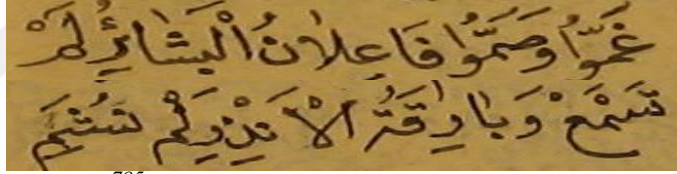 عَمَوّا وَصَمُّوا فَاعِلانُ الْبَشائِرِ لَمْ
تسْمَعْ وَبارِقَةُ الاْنذِرِ لَمْ تُشَمِ